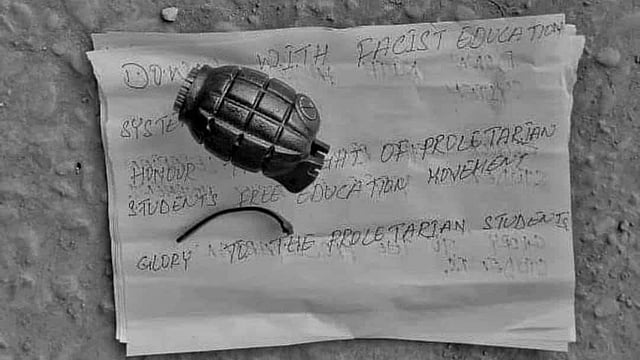 DOWN WITH FACIST EDUCATION
SYSTE
HONOUR HT OF PROLETARIAN
STUDENTS FREE EDUCATION MOVEMENT
GLORY TO THE PROLETARIAN STUDENTS